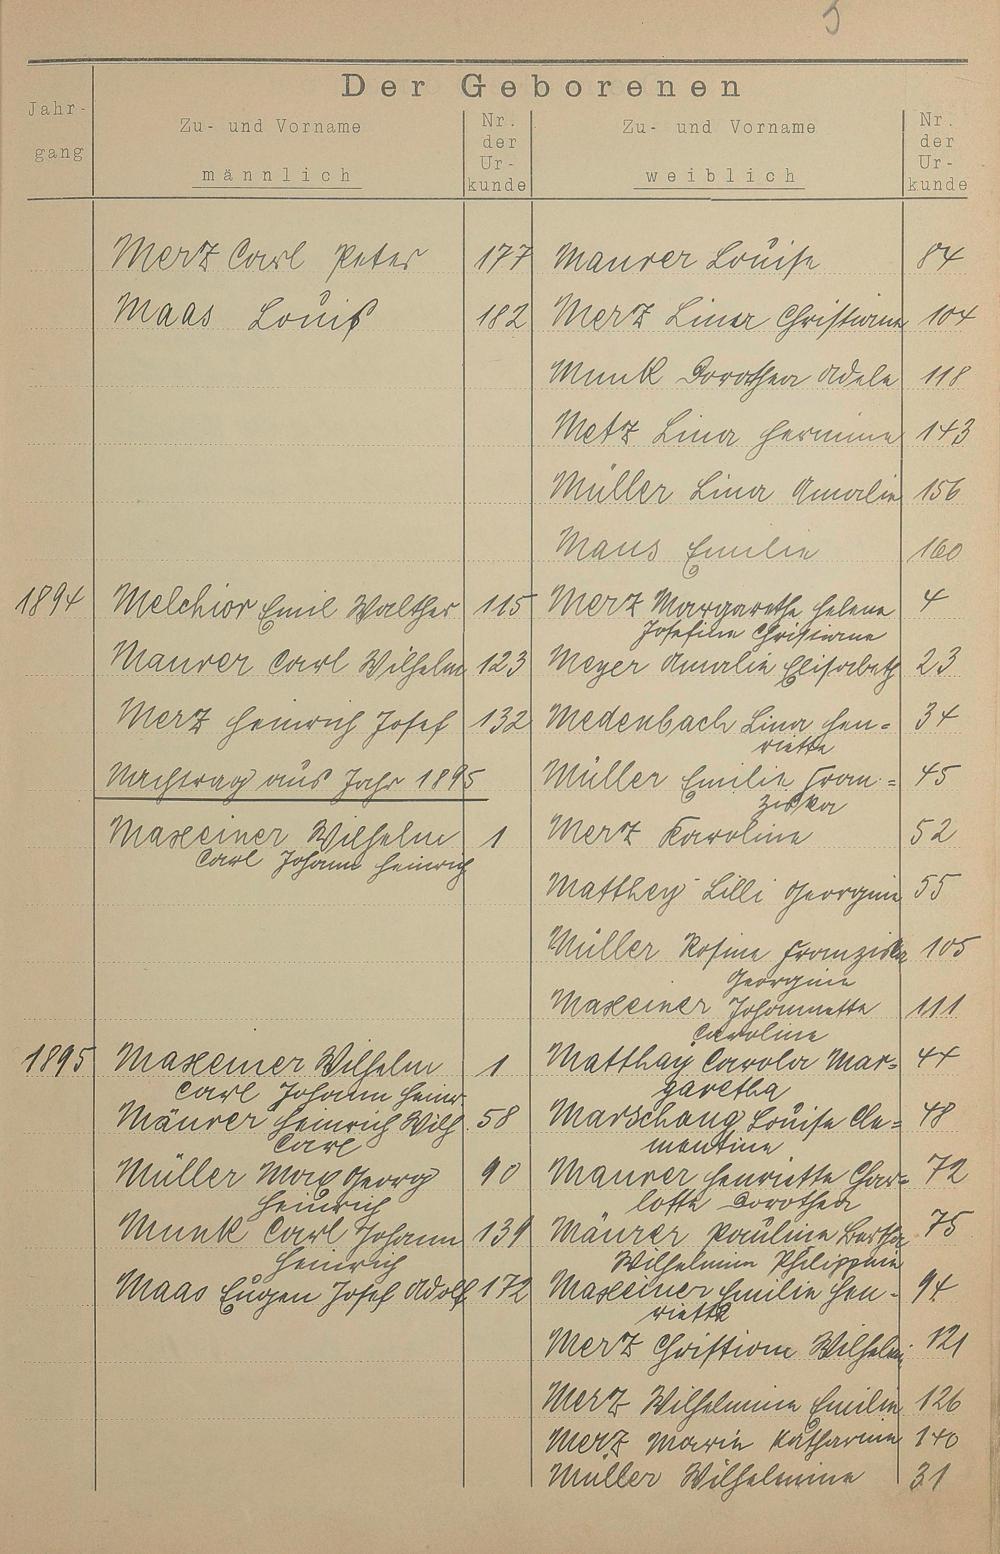 5
Der Geborenen
Jahr-
gang
Zu- und Vorname
männlich
Nr.
der
Ur-
kunde
Zu- und Vorname
weiblich
Nr.
der
Ur-
kunde
Merz Carl Peter 177 Maurer Louise 84
Maas Louis 182 Merz Lina Christiane 104
Munk Dorothea Adele 118
Metz Lina Hermine 143
Müller Lina Amalie 156
Maus Emilie 160
1894 Melchior Emil Walther 115 Merz Margarethe Helene 4
Josefine Christiane
Maurer Carl Wilhelm 123 Meyer Amalie Elisabeth 23
Merz Heinrich Josef 132 Medenbach Lina Hen= 34
riette
Nachtrag aus Jahr 1895 Müller Emilie Fran= 45
ziska
Maxeiner Wilhelm 1 Merz Karoline 52
Carl Johann Heinrich
Matthey Lilli Georgine 55
Müller Rosine Franziska 105
Georgine
Maxeiner Johannette 111
Caroline
1895 Maxeiner Wilhelm 1 Matthay Carola Mar= 44
Carl Johann Heinr. garetha
Mäurer Heinrich Wilh. 58 Marschang Louise Cle= 48
Carl mentine
Müller Max Georg 90 Maurer Henriette Char= 72
Heinrich lotte Dorothea
Munk Carl Johann 139 Mäurer Pauline Bertha 75
Heinrich Wilhelmine Philippine
Maas Eugen Josef Adolf 172 Maxeiner Emilie Hen= 94
riette
Merz Christiane Wilhelmine 121
Merz Wilhelmine Emilie 126
Merz Marie Katharine 140
Müller Wilhelmine 31